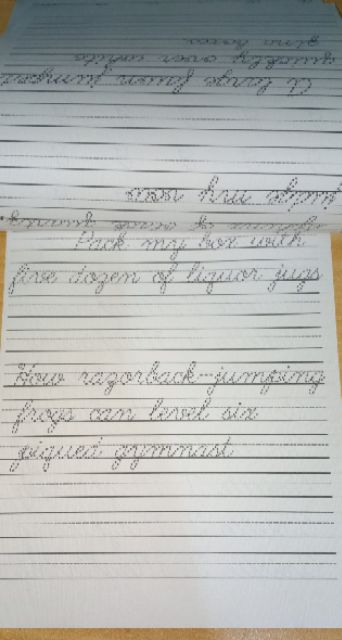 Pack my box with
five dozen of liquor jugs
How razorback-jumping
frogs can level six
piqued gymnast
A large fawn jumped
quickly over white
zinc boxes
judge my vow